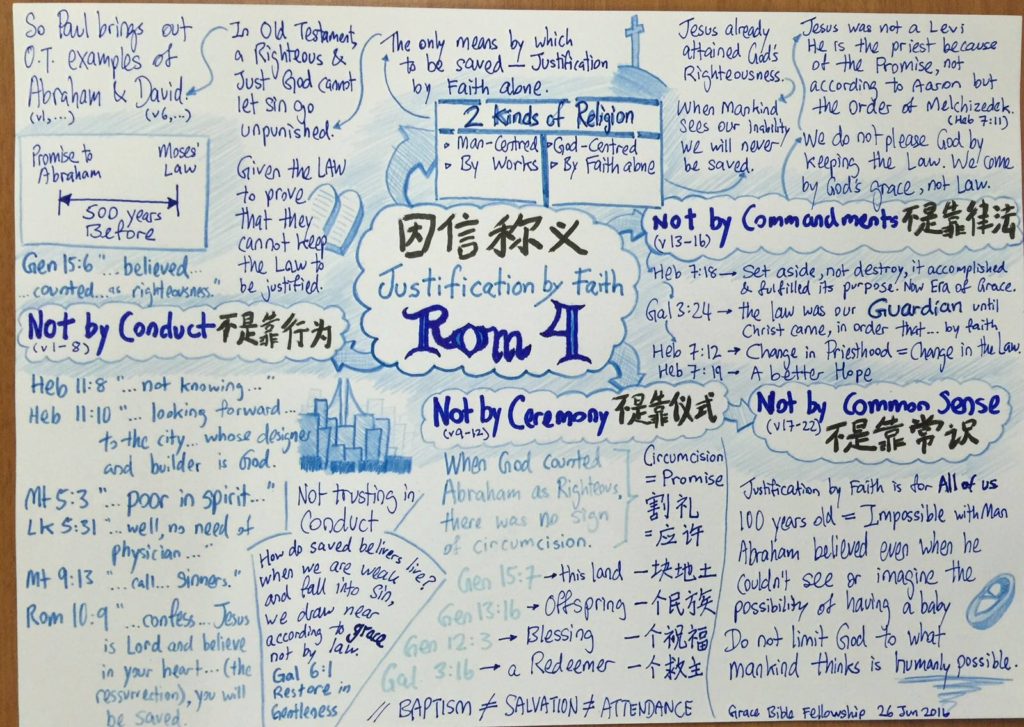 So Paul brings out
O.T. examples of
Abraham & David.
(v1,...) (v6,...)
Promise to Abraham
Moses' Law
500 years
Before
Gen 15:6 "...believed...
...counted...as righteousness."
In Old Testament,
a Righteous &
Just God cannot
let sin go
unpunished.
Given the LAW
to prove
that they
cannot keep
the Law to
be justified.
The only means by which
to be saved — Justification
by Faith alone.
2 Kinds of Religion
Man-Centred
By Works
God-Centred
By Faith alone
Jesus already
attained God's
Righteousness.
When Mankind
sees our inability
we will never
be saved.
Jesus was not a Levi
He is the priest because
of the Promise, not
according to Aaron but
the order of Melchizedek.
(Heb 7:11)
We do not please God by
keeping the Law. We come
by God's grace, not Law.
因信称义
Justification by Faith
Rom 4
Not by Conduct 不是靠行为
(v1-8)
Heb 11:8 "...not knowing..."
Heb 11:10 "... looking forward...
to the city... whose designer
and builder is God.
Mt 5:3 "...poor in spirit..."
Lk 5:31 "...well, no need of
physician..."
Mt 9:13 "...call... sinners."
Rom 10:9 "...confess... Jesus
is Lord and believe
in your heart... (the
ressurrection), you will
be saved.
Not trusting in
Conduct
How do saved belivers live?
when we are weak
and fall into sin,
we draw near
according to grace
not by law.
Gal 6:1
Restore in
Gentleness
Not by Commandments 不是靠律法
(v13-16)
Heb 7:18 → Set aside, not destroy, it accomplished
& fulfilled its purpose. Now Era of Grace.
Gal 3:24 → the law was our Guardian until
Christ came, in order that... by faith
Heb 7:12 → Change in Priesthood = Change in the Law.
Heb 7:19 → A better Hope
Not by Ceremony 不是靠仪式
(v9-12)
When God counted
Abraham as Righteous,
there was no sign
of circumcision.
Circumcision
= Promise
割礼
=应许
Gen 15:7 → this land 一块地土
Gen 13:16 → Offspring 一个民族
Gen 12:3 → Blessing 一个祝福
Gal 3:16 → a Redeemer 一个救主
// BAPTISM ≠ SALVATION ≠ ATTENDANCE
Not by Common Sense
(v17-22) 不是靠常识
Justification by Faith is for All of us
100 years old = Impossible with Man
Abraham believed even when he
couldn't see or imagine the
possibility of having a baby
Do not limit God to what
mankind thinks is humanly possible.
Grace Bible Fellowship 26 Jun 2016